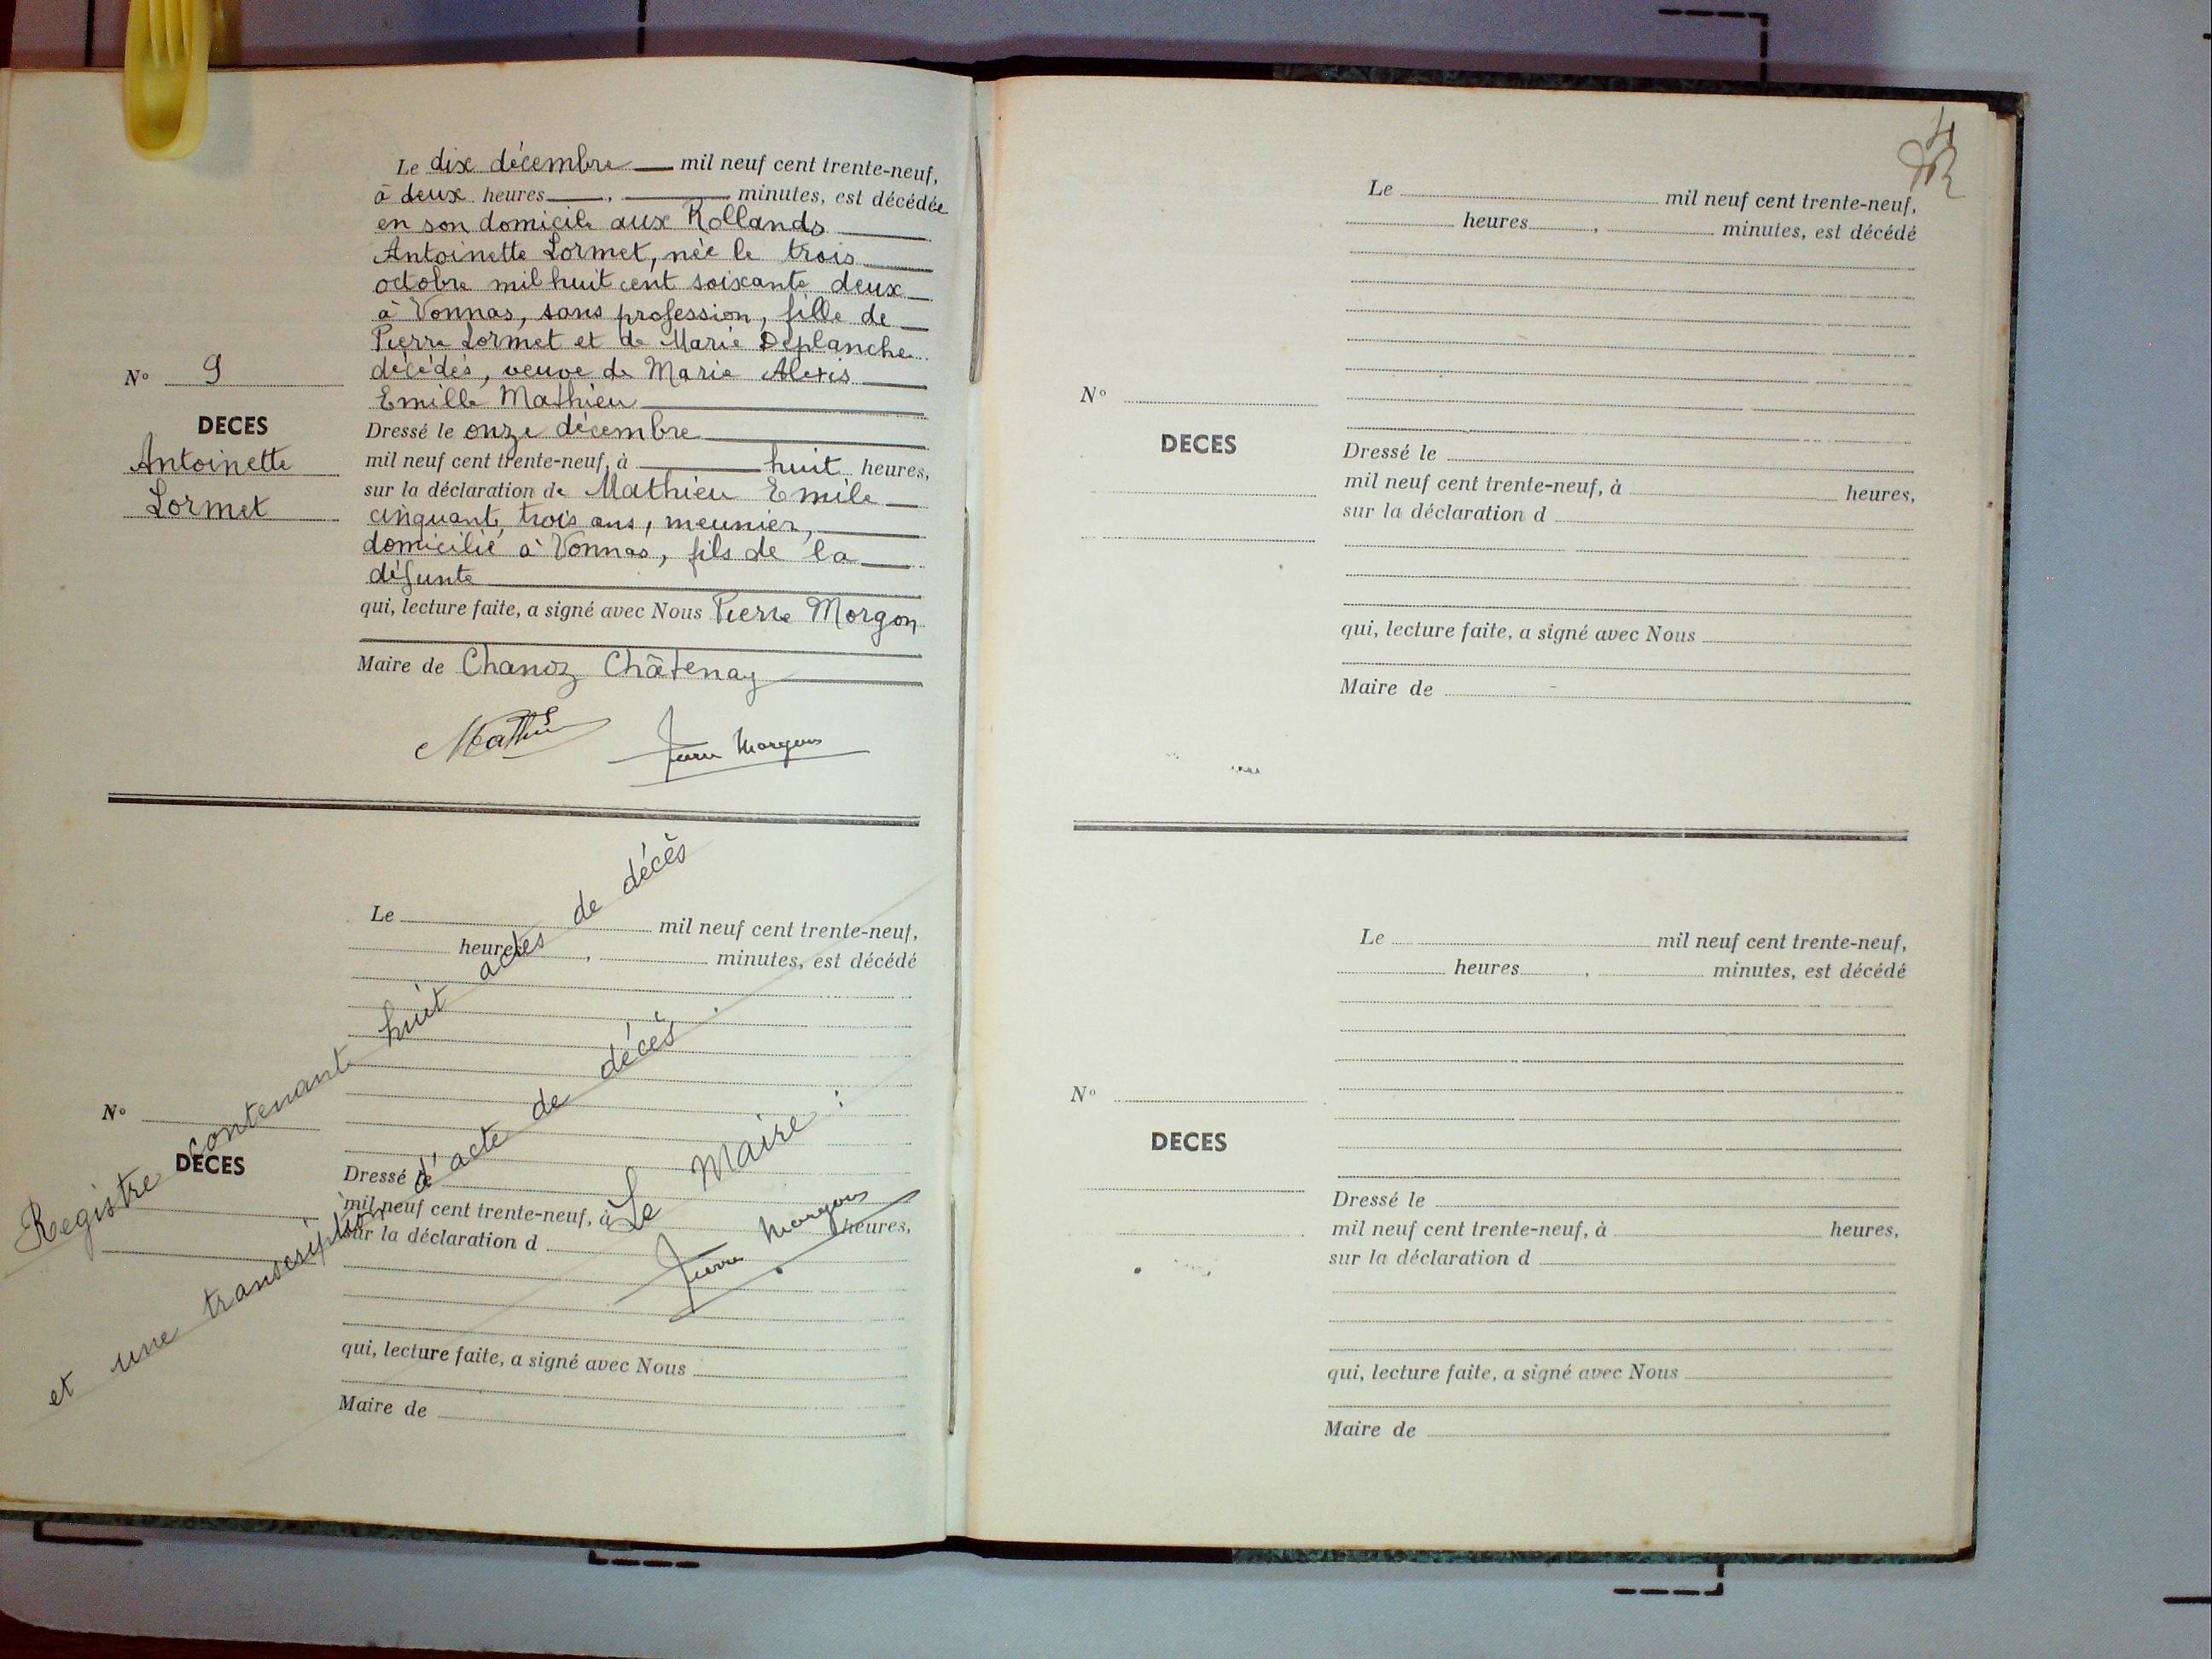 Le dix décembre mil neuf cent trente-neuf,
à deux heures, minutes, est décédée
en son domicile aux Rollands
Antoinette Lormet, née le trois
octobre mil huit cent soixante deux
à Vonnas, sans profession, fille de
Pierre Lormet et de Marie Deplanche
décédés, veuve de Marie Alexis
Emille Mathieu
N° 9
DECES
Antoinette
Lormet
Dressé le onze décembre
mil neuf cent trente-neuf, à huit heures,
sur la déclaration de Mathieu Emile
cinquante trois ans, meunier,
domicilié à Vonnas, fils de la
défunte
qui, lecture faite, a signé avec Nous Pierre Morgon
Maire de Chanoz Châtenay
Mathieu Pierre Morgon
Le mil neuf cent trente-neuf,
heures, minutes, est décédé
N°
DECES
Dressé le
mil neuf cent trente-neuf, à heures,
sur la déclaration d
qui, lecture faite, a signé avec Nous
Maire de
Registre contenant huit actes de décès
et une transcription d'acte de décès.
Le Maire :
Pierre Morgon
Le mil neuf cent trente-neuf,
heures, minutes, est décédé
N°
DECES
Dressé le
mil neuf cent trente-neuf, à heures,
sur la déclaration d
qui, lecture faite, a signé avec Nous
Maire de
Le mil neuf cent trente-neuf,
heures, minutes, est décédé
N°
DECES
Dressé le
mil neuf cent trente-neuf, à heures,
sur la déclaration d
qui, lecture faite, a signé avec Nous
Maire de